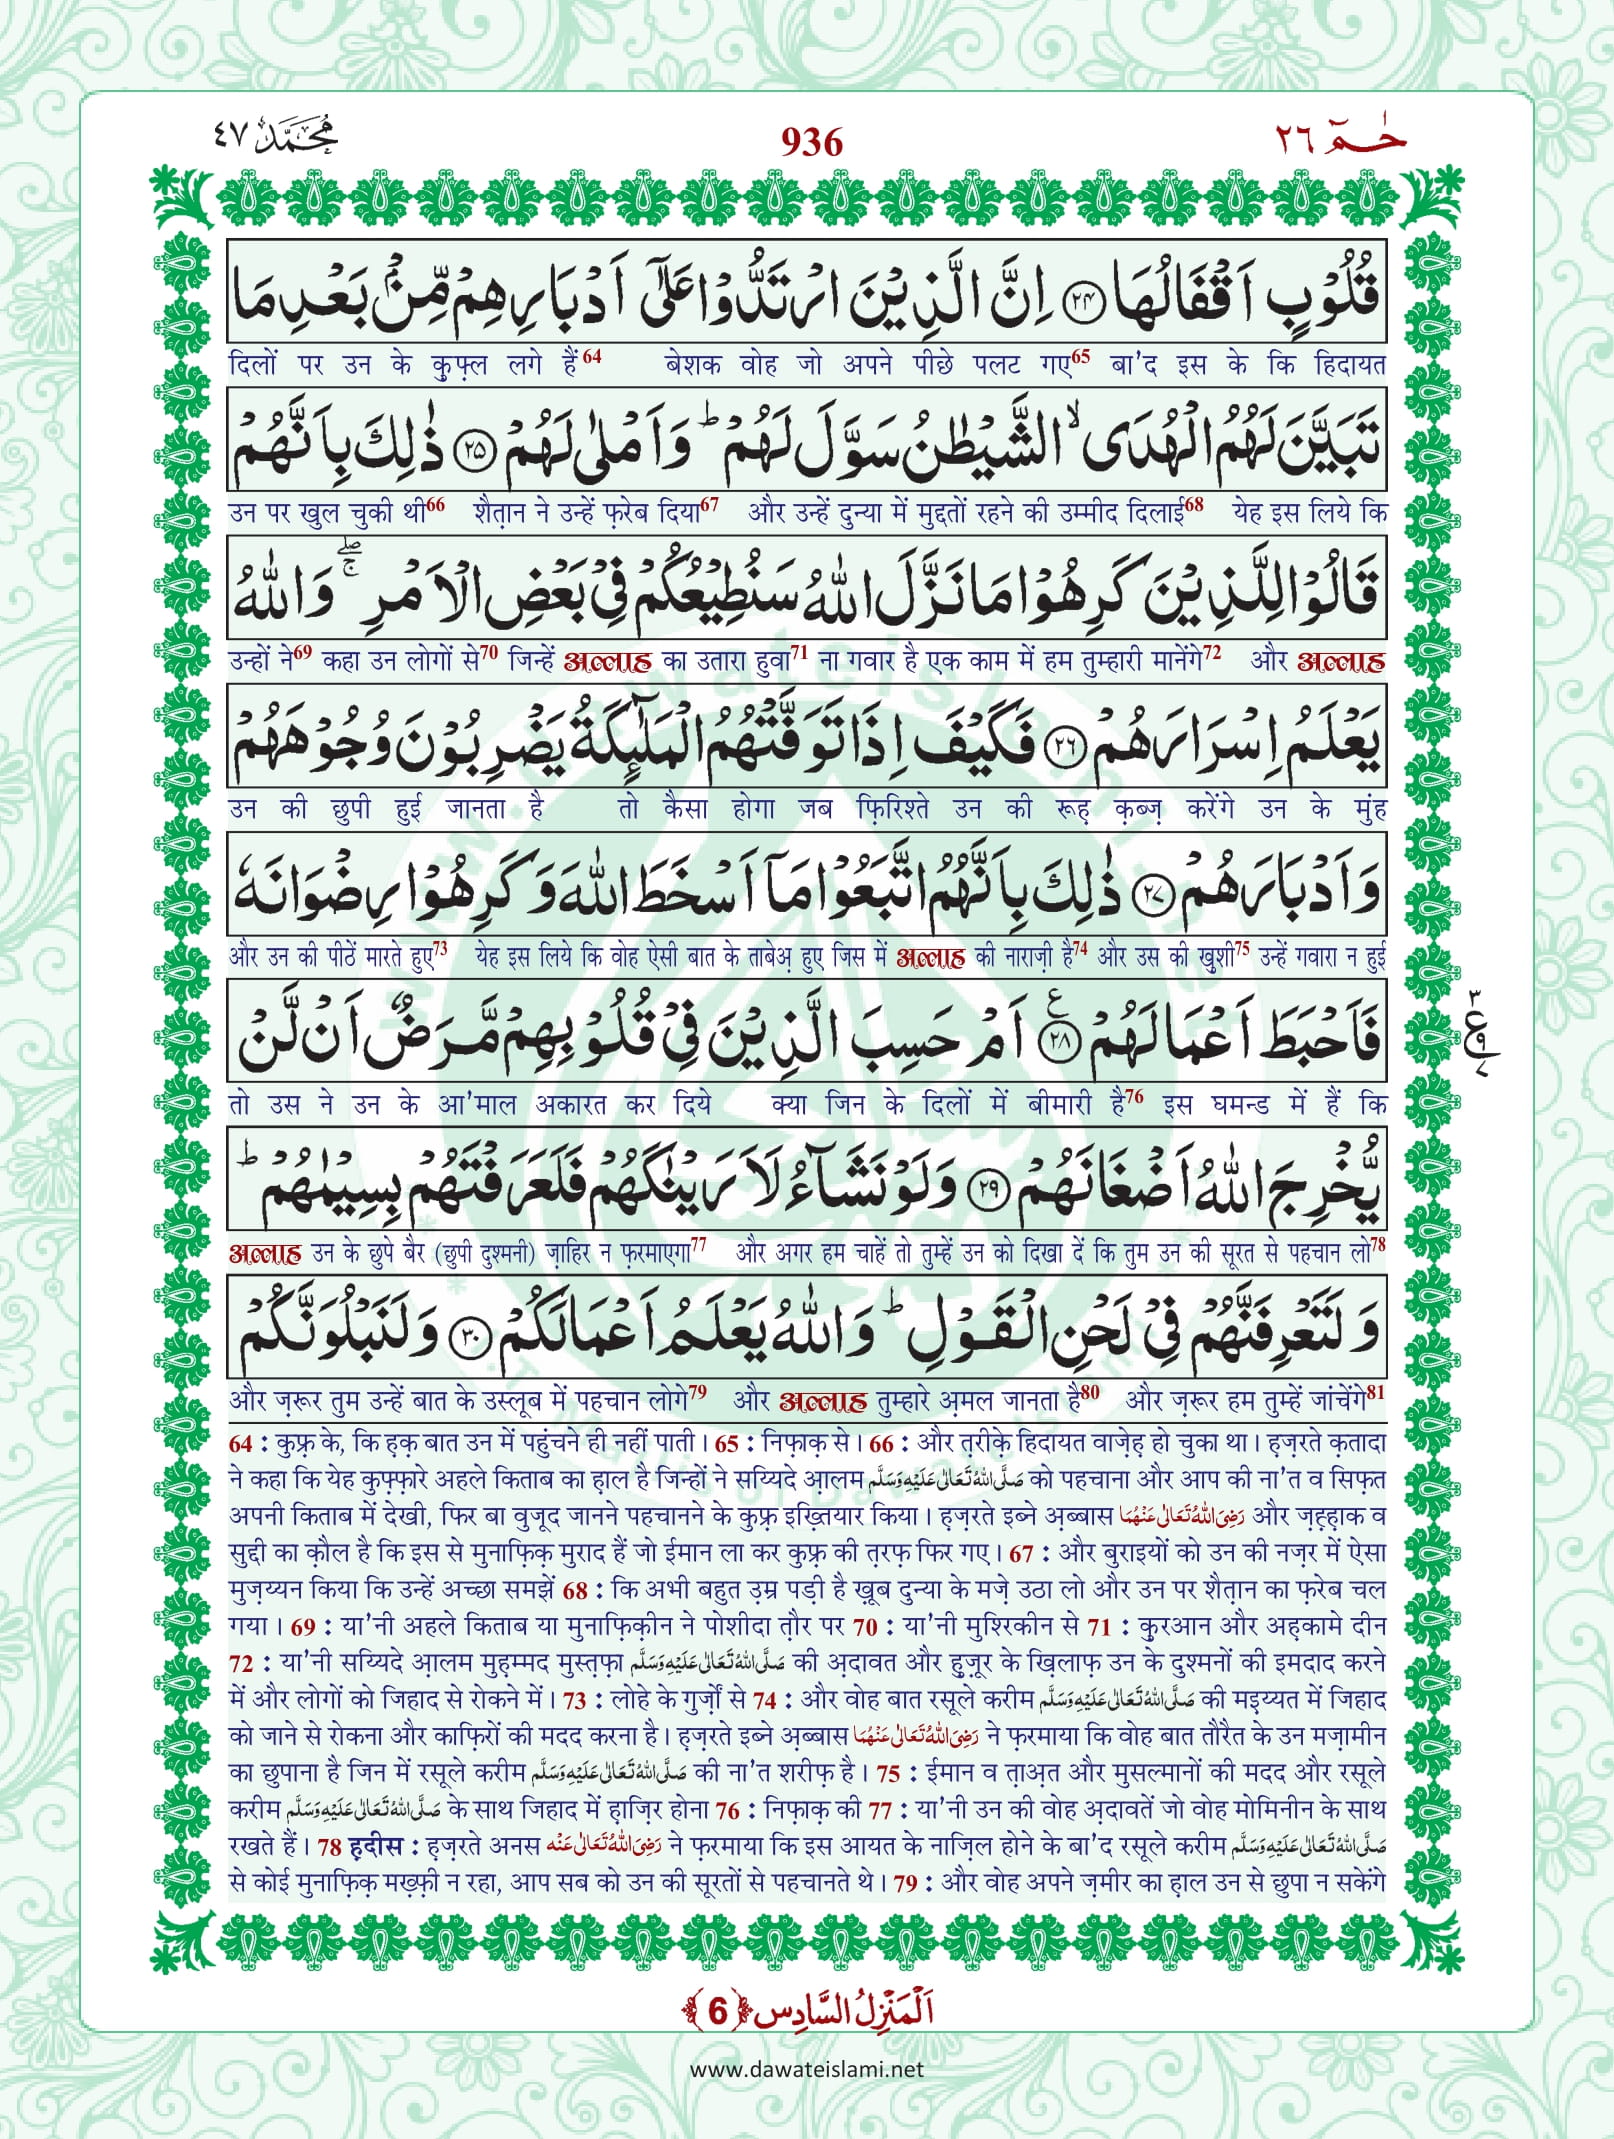 محمد ٤٧
936
حٰمٓ ٢٦
قُلُوْبٍ اَقْفَالُهَا ﴿۲۴﴾ اِنَّ الَّذِیْنَ ارْتَدُّوْا عَلٰۤى اَدْبَارِهِمْ مِّنْۢ بَعْدِ مَا
दिलों पर उन के क़ुफ़्ल लगे हैं64 बेशक वोह जो अपने पीछे पलट गए65 बा'द इस के कि हिदायत
تَبَیَّنَ لَهُمُ الْهُدَىۙ الشَّیْطٰنُ سَوَّلَ لَهُمْؕ وَ اَمْلٰى لَهُمْ ﴿۲۵﴾ ذٰلِكَ بِاَنَّهُمْ
उन पर खुल चुकी थी66 शैत़ान ने उन्हें फ़रेब दिया67 और उन्हें दुन्या में मुद्दतों रहने की उम्मीद दिलाई68 येह इस लिये कि
قَالُوْا لِلَّذِیْنَ كَرِهُوْا مَا نَزَّلَ اللّٰهُ سَنُطِیْعُكُمْ فِیْ بَعْضِ الْاَمْرِ ۚۖ وَ اللّٰهُ
उन्हों ने69 कहा उन लोगों से70 जिन्हें अल्लाह का उतारा हुवा71 ना गवार है एक काम में हम तुम्हारी मानेंगे72 और अल्लाह
یَعْلَمُ اِسْرَارَهُمْ ﴿۲۶﴾ فَكَیْفَ اِذَا تَوَفَّتْهُمُ الْمَلٰٓىٕكَةُ یَضْرِبُوْنَ وُجُوْهَهُمْ
उन की छुपी हुई जानता है तो कैसा होगा जब फ़िरिश्ते उन की रूह़ क़ब्ज़ करेंगे उन के मुंह
وَ اَدْبَارَهُمْ ﴿۲۷﴾ ذٰلِكَ بِاَنَّهُمُ اتَّبَعُوْا مَاۤ اَسْخَطَ اللّٰهَ وَ كَرِهُوْا رِضْوَانَهٗ
और उन की पीठें मारते हुए73 येह इस लिये कि वोह ऐसी बात के ताबेअ़ हुए जिस में अल्लाह की नाराज़ी है74 और उस की ख़ुशी75 उन्हें गवारा न हुई
فَاَحْبَطَ اَعْمَالَهُمْ ﴿۲۸﴾ ع اَمْ حَسِبَ الَّذِیْنَ فِیْ قُلُوْبِهِمْ مَّرَضٌ اَنْ لَّنْ
٣ ع ٩ ٧
तो उस ने उन के आ'माल अकारत कर दिये क्या जिन के दिलों में बीमारी है76 इस घमन्ड में हैं कि
یُّخْرِجَ اللّٰهُ اَضْغَانَهُمْ ﴿۲۹﴾ وَ لَوْ نَشَآءُ لَاَرَیْنٰكَهُمْ فَلَعَرَفْتَهُمْ بِسِیْمٰىهُمْؕ
अल्लाह उन के छुपे बैर (छुपी दुश्मनी) ज़ाहिर न फ़रमाएगा77 और अगर हम चाहें तो तुम्हें उन को दिखा दें कि तुम उन की सूरत से पहचान लो78
وَ لَتَعْرِفَنَّهُمْ فِیْ لَحْنِ الْقَوْلِؕ وَ اللّٰهُ یَعْلَمُ اَعْمَالَكُمْ ﴿۳۰﴾ وَ لَنَبْلُوَنَّكُمْ
और ज़रूर तुम उन्हें बात के उस्लूब में पहचान लोगे79 और अल्लाह तुम्हारे अ़मल जानता है80 और ज़रूर हम तुम्हें जांचेंगे81
64 : कुफ़्र के, कि ह़क़ बात उन में पहुंचने ही नहीं पाती। 65 : निफ़ाक़ से। 66 : और त़रीक़े हिदायत वाज़ेह़ हो चुका था। ह़ज़रते क़तादा
ने कहा कि येह कुफ़्फ़ारे अहले किताब का ह़ाल है जिन्हों ने सय्यिदे आ़लम صَلَّى اللّٰهُ تَعَالٰى عَلَيْهِ وَسَلَّم को पहचाना और आप की ना'त व सिफ़त
अपनी किताब में देखी, फिर बा वुजूद जानने पहचानने के कुफ़्र इख़्तियार किया। ह़ज़रते इब्ने अ़ब्बास رَضِىَ اللّٰهُ تَعَالٰى عَنْهُمَا और ज़ह़्ह़ाक व
सुद्दी का क़ौल है कि इस से मुनाफ़िक़ मुराद हैं जो ईमान ला कर कुफ़्र की त़रफ़ फिर गए। 67 : और बुराइयों को उन की नज़र में ऐसा
मुज़य्यन किया कि उन्हें अच्छा समझें 68 : कि अभी बहुत उ़म्र पड़ी है ख़ूब दुन्या के मज़े उठा लो और उन पर शैत़ान का फ़रेब चल
गया। 69 : या'नी अहले किताब या मुनाफ़िक़ीन ने पोशीदा त़ौर पर 70 : या'नी मुश्रिकीन से 71 : क़ुरआन और अह़कामे दीन
72 : या'नी सय्यिदे आ़लम मुह़म्मद मुस्त़फ़ा صَلَّى اللّٰهُ تَعَالٰى عَلَيْهِ وَسَلَّم की अ़दावत और हु़ज़ूर के ख़िलाफ़ उन के दुश्मनों की इमदाद करने
में और लोगों को जिहाद से रोकने में। 73 : लोहे के गुर्ज़ों से 74 : और वोह बात रसूले करीम صَلَّى اللّٰهُ تَعَالٰى عَلَيْهِ وَسَلَّم की मइ़य्यत में जिहाद
को जाने से रोकना और काफ़िरों की मदद करना है। ह़ज़रते इब्ने अ़ब्बास رَضِىَ اللّٰهُ تَعَالٰى عَنْهُمَا ने फ़रमाया कि वोह बात तौरैत के उन मज़ामीन
का छुपाना है जिन में रसूले करीम صَلَّى اللّٰهُ تَعَالٰى عَلَيْهِ وَسَلَّم की ना'त शरीफ़ है। 75 : ईमान व त़ाअ़त और मुसल्मानों की मदद और रसूले
करीम صَلَّى اللّٰهُ تَعَالٰى عَلَيْهِ وَسَلَّم के साथ जिहाद में ह़ाज़िर होना 76 : निफ़ाक़ की 77 : या'नी उन की वोह अ़दावतें जो वोह मोमिनीन के साथ
रखते हैं। 78 ह़दीस : ह़ज़रते अनस رَضِىَ اللّٰهُ تَعَالٰى عَنْه ने फ़रमाया कि इस आयत के नाज़िल होने के बा'द रसूले करीम صَلَّى اللّٰهُ تَعَالٰى عَلَيْهِ وَسَلَّم
से कोई मुनाफ़िक़ मख़्फ़ी न रहा, आप सब को उन की सूरतों से पहचानते थे। 79 : और वोह अपने ज़मीर का ह़ाल उन से छुपा न सकेंगे
اَلْمَنْزِلُ السَّادِس ﴿6﴾
www.dawateislami.net